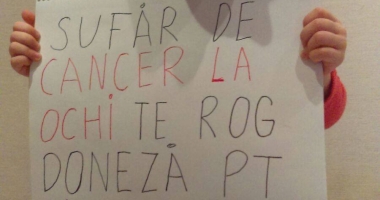 SUFĂR DE
CANCER LA
OCHI TE ROG
DONEZĂ PT